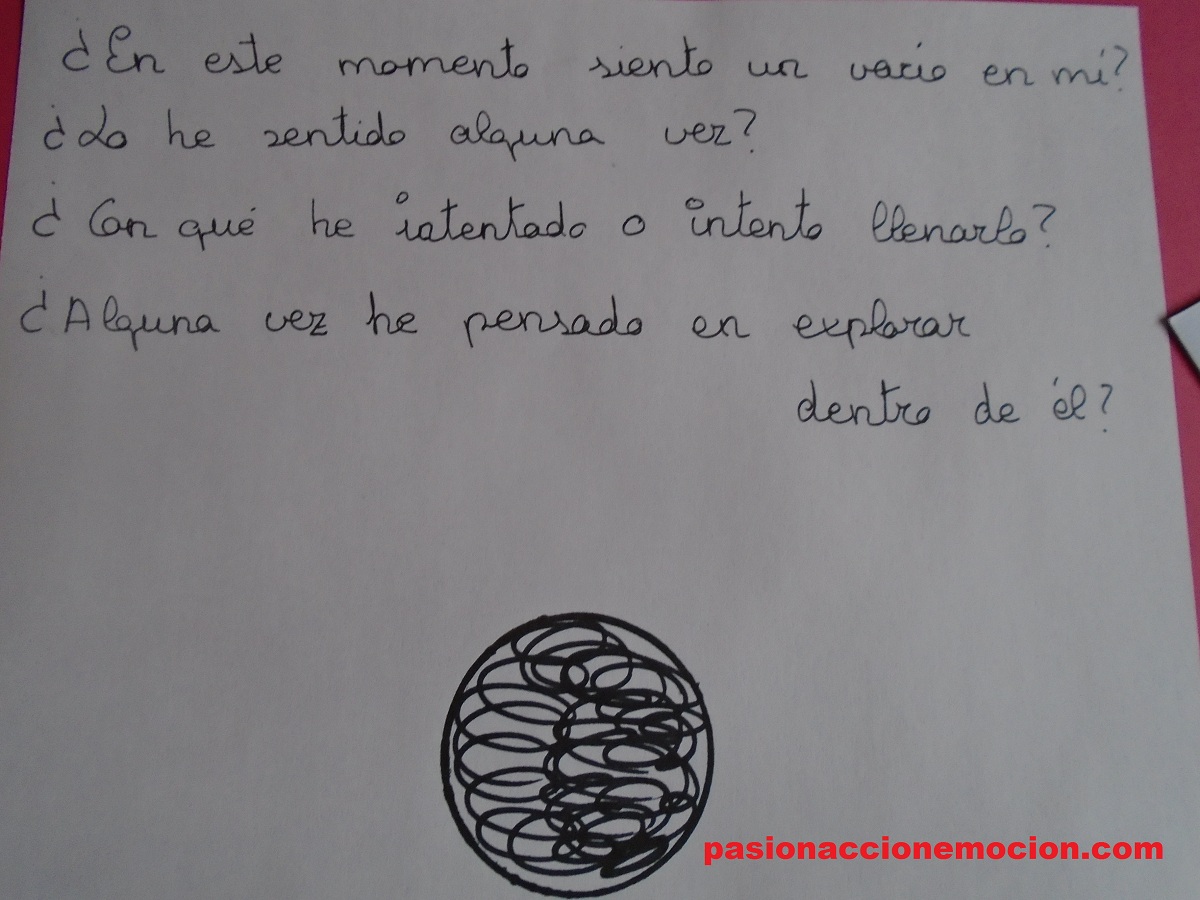 ¿En este momento siento un vacio en mí?
¿Lo he sentido alguna vez?
¿Con qué he intentado o intento llenarlo?
¿Alguna vez he pensado en explorar
dentro de él?
pasionaccionemocion.com